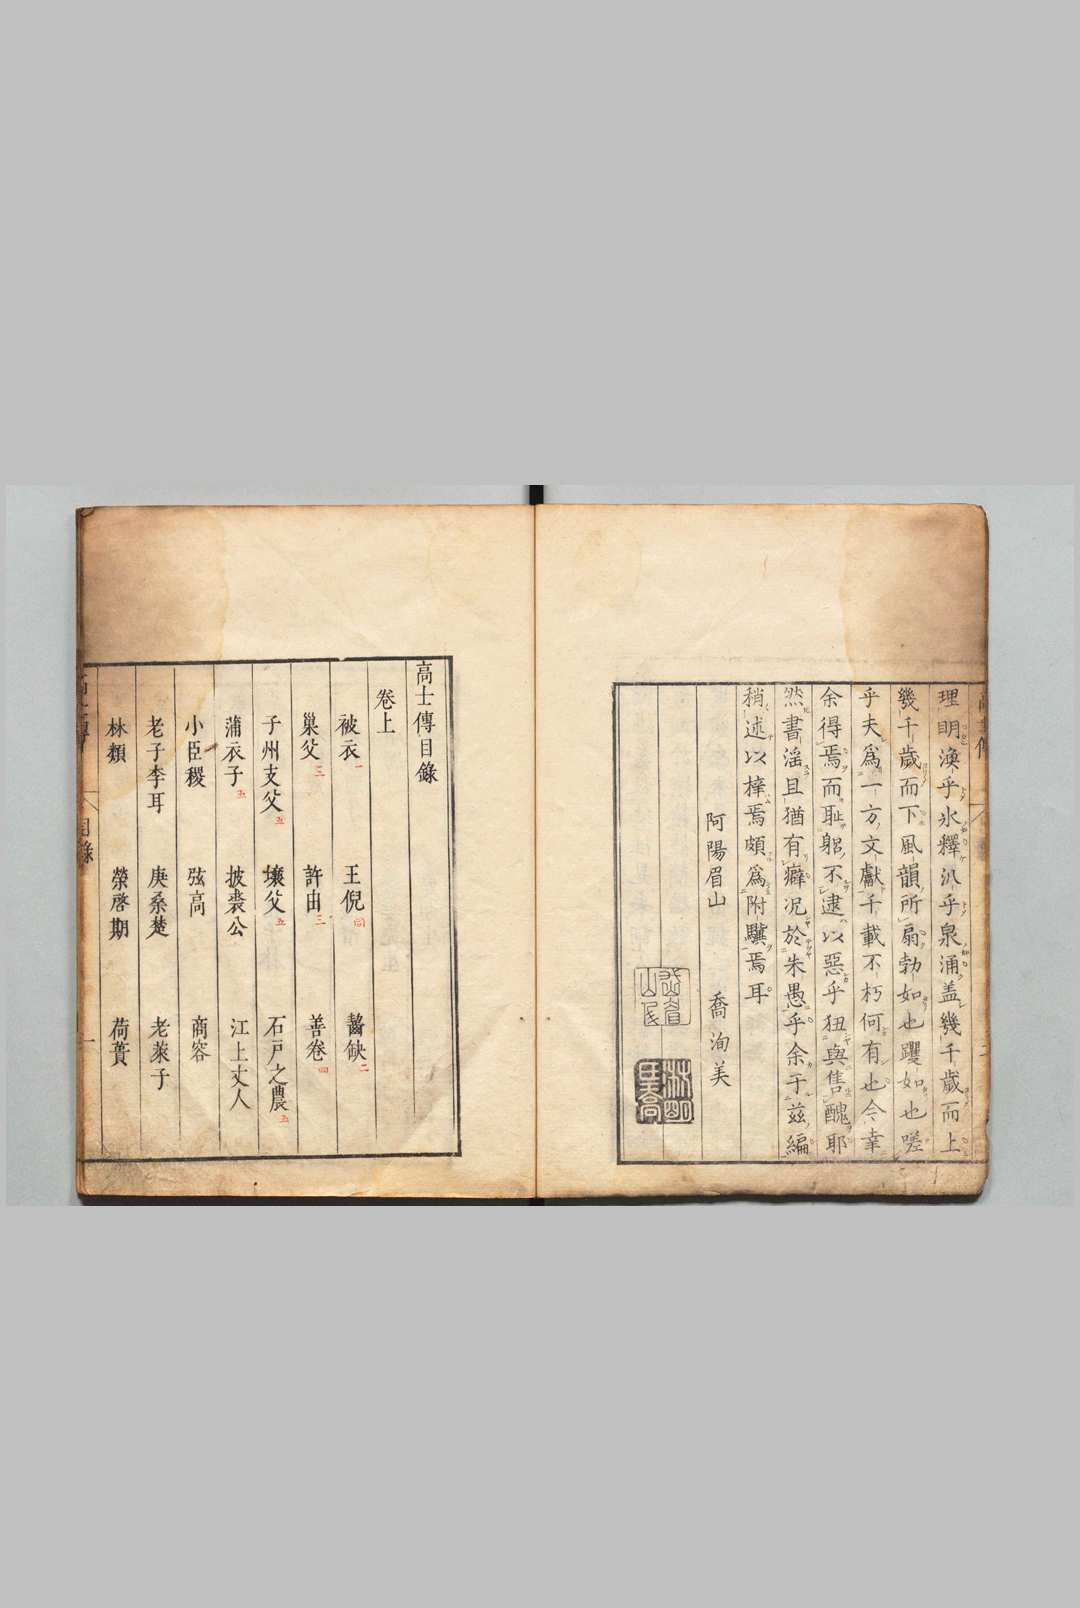 理明渙乎氷釋汎乎泉涌盖幾千歲而上
幾千歲而下風韻所扇勃如也躩如也嗟
乎夫爲一方文獻千載不朽何有也今幸
余得焉而恥躬不逮以惡乎狃與售醜耶
然書淫且猶有癖况於朱愚乎余于茲編
稍述以擇焉頗爲附驥焉耳
阿陽眉山 喬洵美
高士傳目錄
卷上
被衣一 王倪 齧缺二
巢父三 許由三 善卷四
子州支父五 壤父五 石戶之農五
蒲衣子五 披裘公 江上丈人
小臣稷 弦高 商容
老子李耳 庚桑楚 老萊子
林類 榮啓期 荷蕢
目錄 一